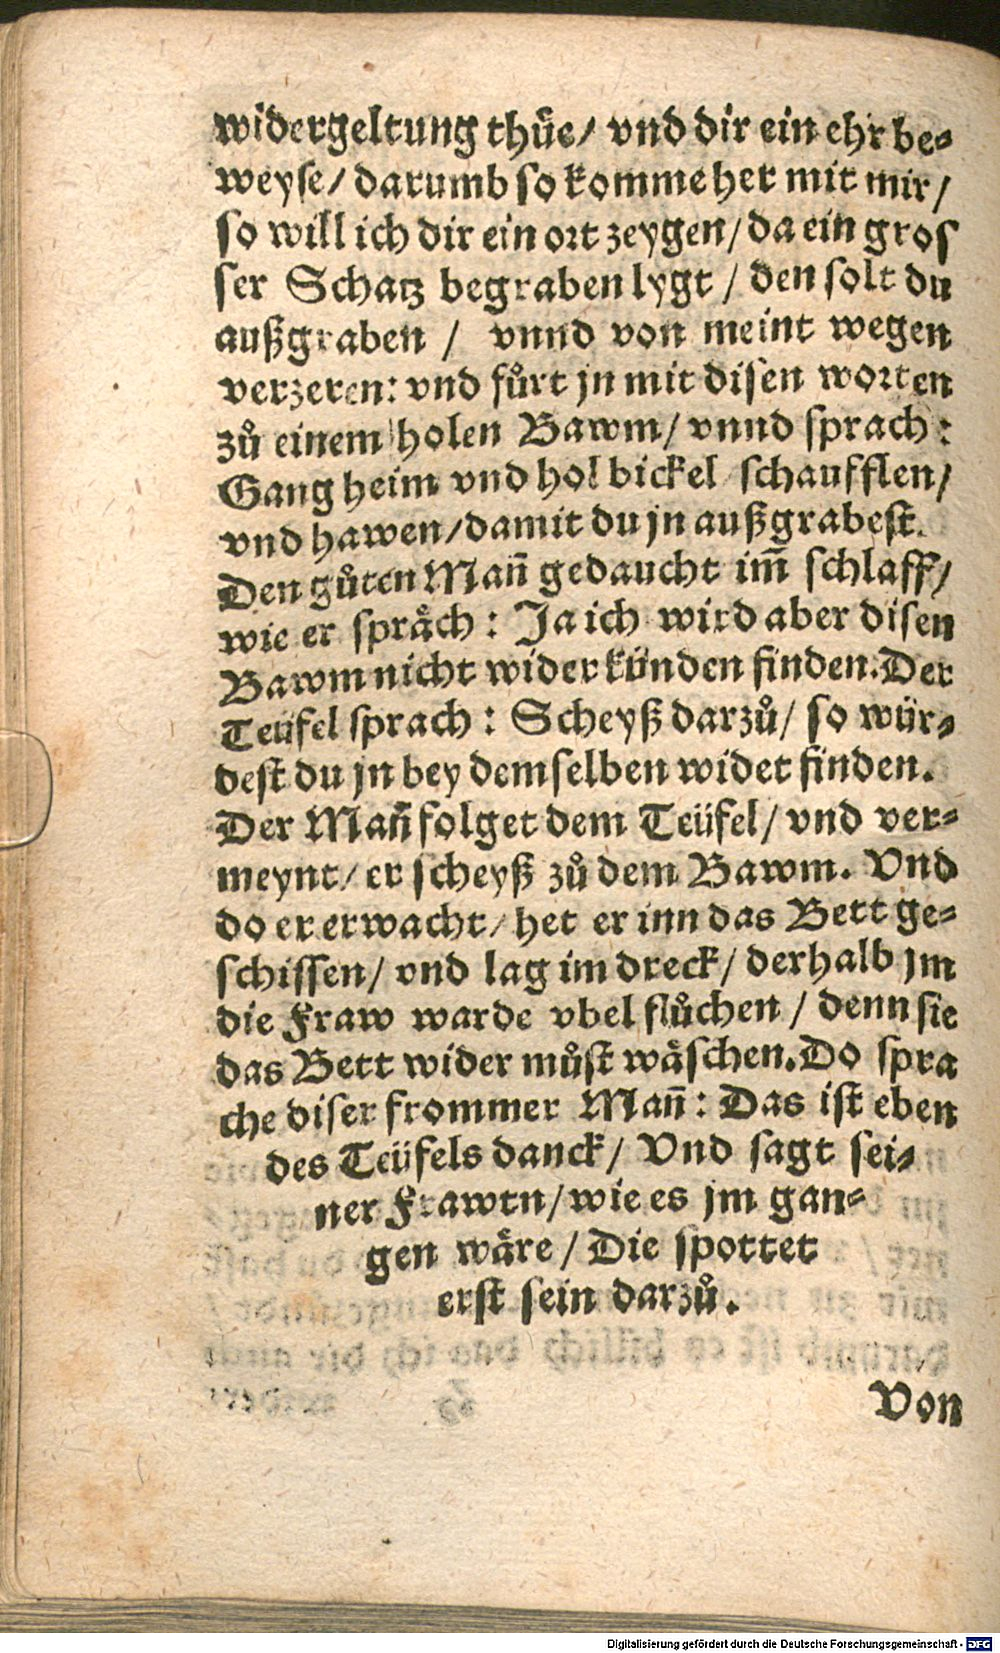 widergeltung thüe/ vnd dir ein ehr be-
weyse/ darumb so komme her mit mir/
so will ich dir ein ort zeygen/ da ein gros
ser Schatz begraben lygt / den solt du
außgraben / vnnd von meint wegen
verzeren: vnd fůrt jn mit disen worten
zů einem holen Bawm/ vnnd sprach:
Gang heim vnd hol bickel schaufflen/
vnd hawen/ damit du jn außgrabest.
Den gůten Mañ gedaucht im̃ schlaff/
wie er språch: Ja ich wird aber disen
Bawm nicht wider künden finden. Der
Teüfel sprach: Scheyß darzů/ so wür-
dest du jn bey demselben widet finden.
Der Mañ folget dem Teüfel/ vnd ver-
meynt/ er scheyß zů dem Bawm. Vnd
do er erwacht/ het er inn das Bett ge-
schissen/ vnd lag im dreck/ derhalb jm
die Fraw warde vbel flůchen / denn sie
das Bett wider můst wäschen. Do spra
che diser frommer Mañ: Das ist eben
des Teüfels danck/ Vnd sagt sei-
ner Frawen/ wie es jm gan-
gen wäre / Die spottet
erst sein darzů.
Von
Digitalisierung gefördert durch die Deutsche Forschungsgemeinschaft - DFG